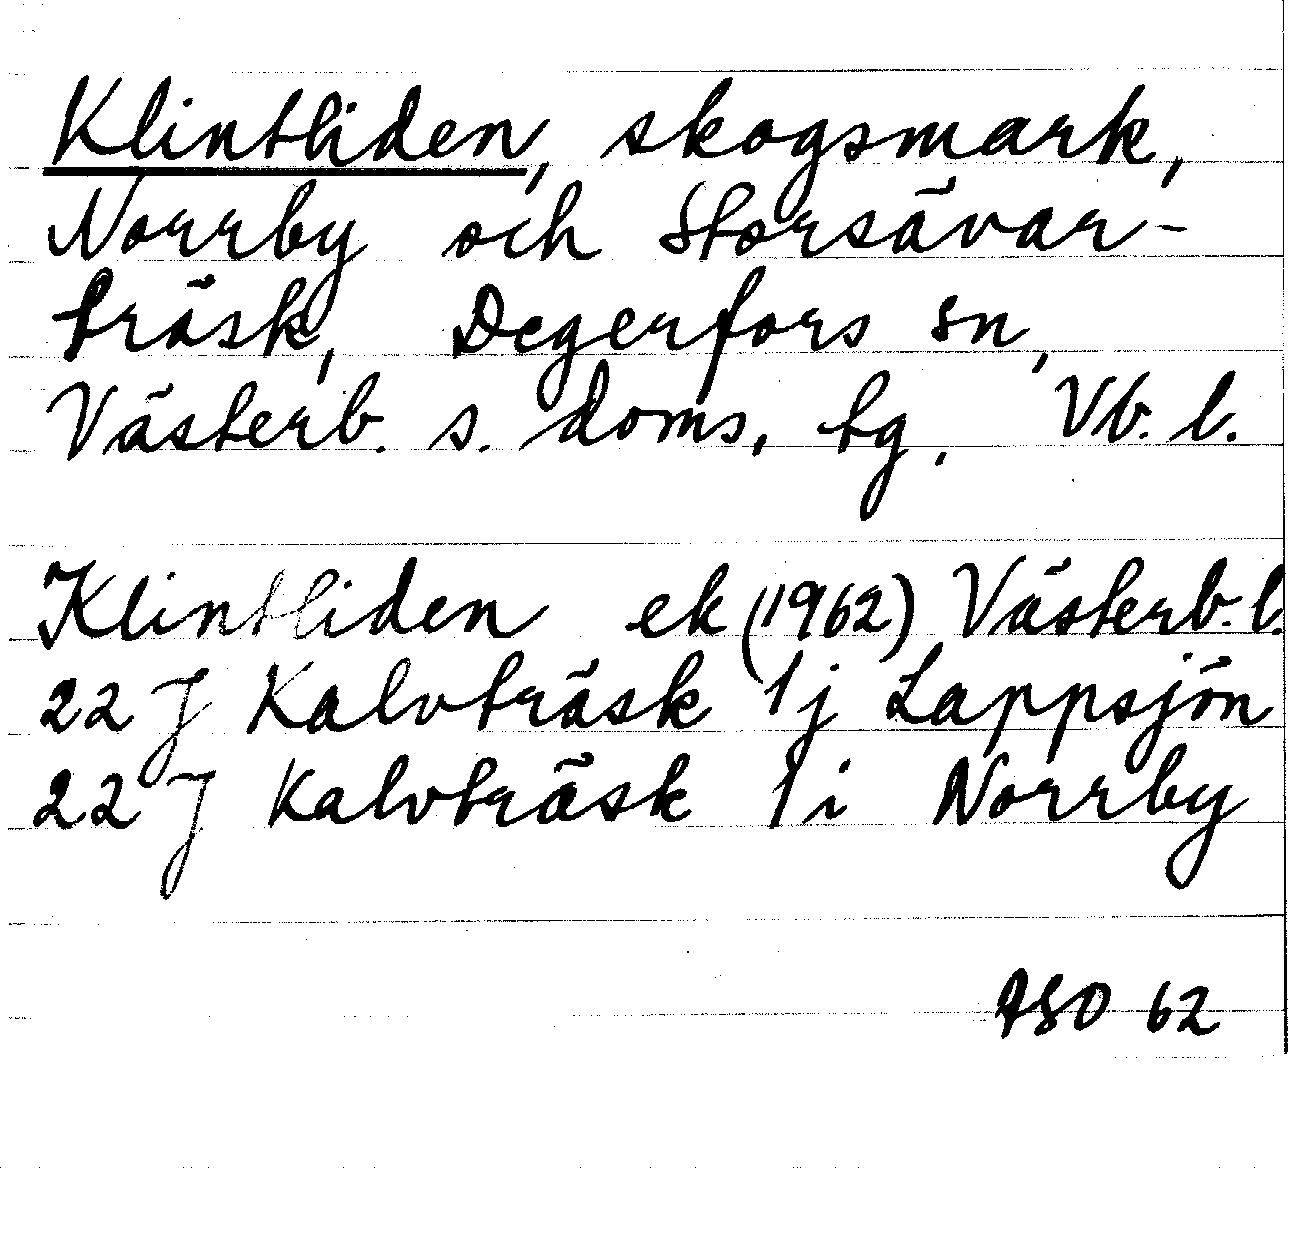 Klintliden, skogsmark,
Norrby och Storsävar-
träsk, Degerfors sn,
Västerb. s. doms. tg. Vb. l.
Klintliden ek (1962) Västerb. l.
22 J Kalvträsk 1j Lappsjön
22 J Kalvträsk 1i Norrby
ASO 62